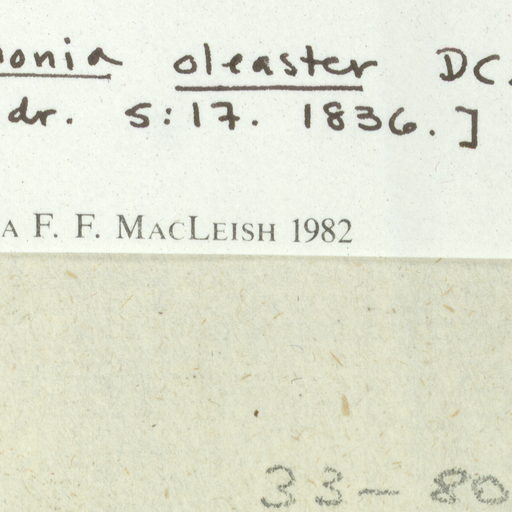 onia oleaster DC.
dr. 5:17. 1836.]
A F. F. MACLEISH 1982
33-80